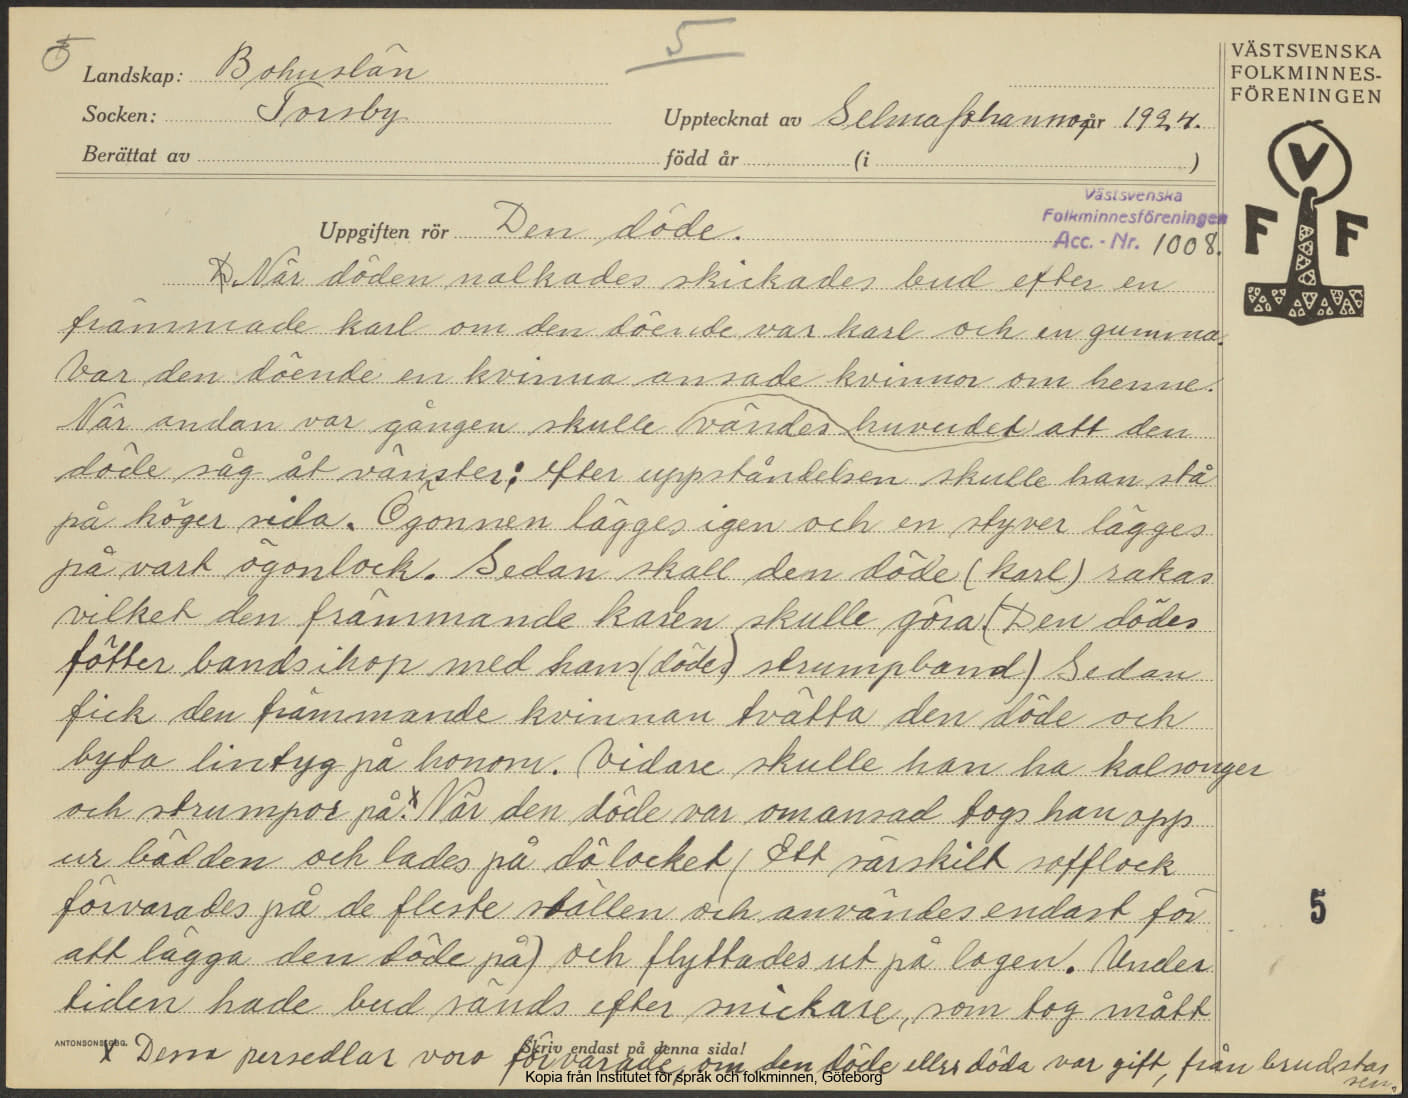 5
5
Landskap: Bohuslän
Socken: Torsby
Upptecknat av Selma Johannes år 1924.
Berättat av
född år (i )
VÄSTSVENSKA
FOLKMINNES-
FÖRENINGEN
V
F F
Västsvenska
Folkminnesföreningen
Acc. - Nr. 1008.
Uppgiften rör Den döde.
När döden nalkades skickades bud efter en
främmade karl om den döende var karl och en gumma.
Var den döende en kvinna ansade kvinnor om henne.
När andan var gången skulle vändes huvudet att den
döde såg åt vänster; efter uppståndelsen skulle han stå
på höger sida. Ögonnen lägges igen och en styver lägges
på vart ögonlock. Sedan skall den döde (karl) rakas
vilket den främmande karlen skulle göra. (Den dödes
fötter bands ihop med hans (dödes) strumpband) Sedan
fick den främmande kvinnan tvätta den döde och
byta lintyg på honom. Vidare skulle han ha kalsonger
och strumpor på. x När den döde var omansad togs han opp
ur bädden och lades på dölocket (Ett särskilt sofflock
förvarades på de fleste ställen och användes endast för
att lägga den döde på) och flyttades ut på logen. Under
tiden hade bud sänds efter snickare, som tog mått
5
ANTONSONS, GBG.
Skriv endast på denna sida!
x Dessa persedlar voro förvarade, om den döde eller döda var gift, från brudstas
sen.
Kopia från Institutet för språk och folkminnen, Göteborg